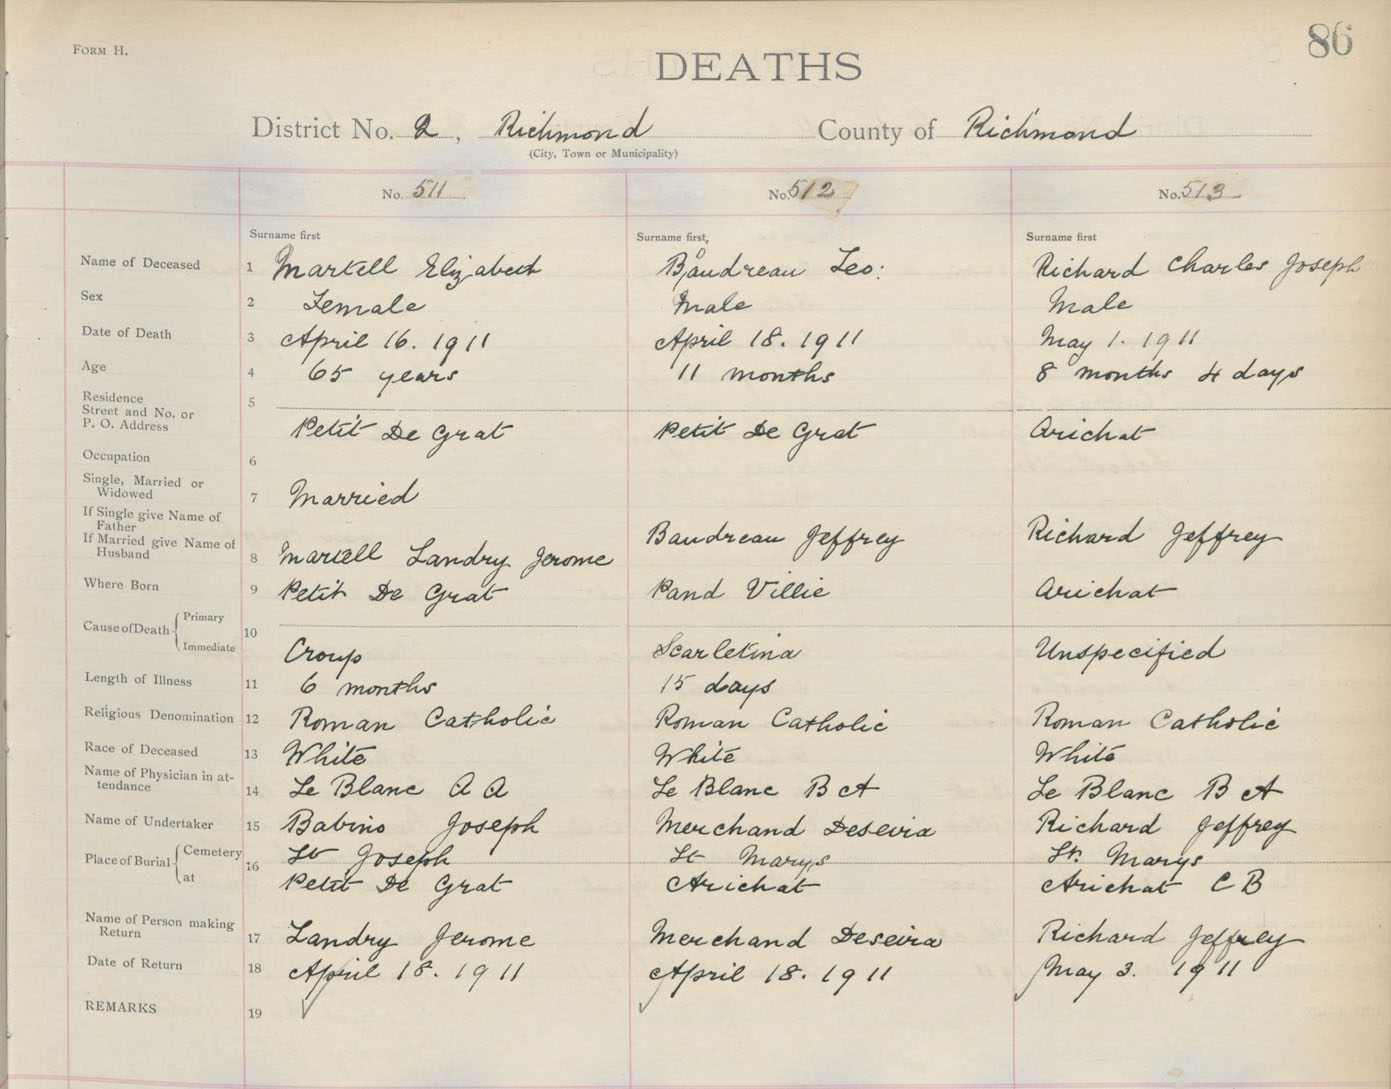 FORM H.
86
DEATHS
District No. 2, Richmond County of Richmond
(City, Town or Municipality)
No. 511 No. 512 No. 513
Surname first Surname first, Surname first
Name of Deceased 1 Markell Elizabeth Boudreau Leo: Richard Charles Joseph
Sex 2 Female Male Male
Date of Death 3 April 16. 1911 April 18. 1911 May 1. 1911
Age 4 65 years 11 months 8 months 4 days
Residence 5
Street and No. or
P. O. Address Petit De Grat Petit De Grat Arichat
Occupation 6
Single, Married or
Widowed 7 Married
If Single give Name of
Father Baudreau Jeffrey Richard Jeffrey
If Married give Name of
Husband 8 Martell Landry Jerome
Where Born 9 Petit De Grat Pand Villie Arichat
Cause of Death Primary 10
Immediate Croup Scarletina Unspecified
Length of Illness 11 6 months 15 days
Religious Denomination 12 Roman Catholic Roman Catholic Roman Catholic
Race of Deceased 13 White White White
Name of Physician in at-
tendance 14 Le Blanc A A Le Blanc B A Le Blanc B A
Name of Undertaker 15 Babino Joseph Merchand Deseira Richard Jeffrey
Place of Burial Cemetery 16 St Joseph St Marys St. Marys
at Petit De Grat Arichat Arichat C B
Name of Person making
Return 17 Landry Jerome Merchand Deseira Richard Jeffrey
Date of Return 18 April 18. 1911 April 18. 1911 May 3. 1911
REMARKS 19